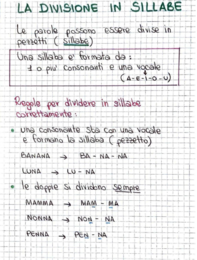 LA DIVISIONE IN SILLABE
Le parole possono essere divise in
pezzetti (sillabe)
Una sillaba e' formata da:
1 o piu' consonanti e una vocale
(A-E-I-O-U)
Regole per dividere in sillabe
correttamente:
• una consonante sta con una vocale
e formano la sillaba (pezzetto)
BANANA → BA - NA - NA
LUNA → LU - NA
• le doppie si dividono sempre
MAMMA → MAM - MA
NONNA → NON - NA
PENNA → PEN - NA